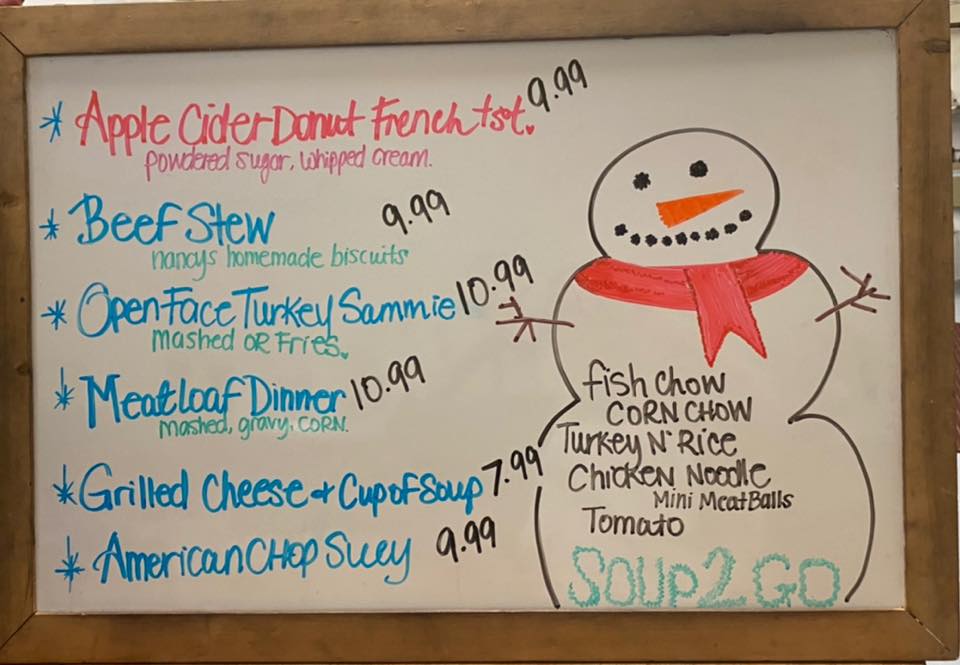 * Apple Cider Donut French tst. 9.99
powdered sugar, whipped cream.
* Beef Stew 9.99
nancys homemade biscuits
* Open Face Turkey Sammie 10.99
Mashed OR Fries.
* Meatloaf Dinner 10.99
mashed, gravy, CORN.
* Grilled Cheese + Cup of Soup 7.99
* American CHOP Suey 9.99
fish Chow
CORN CHOW
Turkey N' Rice
Chicken Noodle
Mini MeatBalls
Tomato
SOUP 2 GO